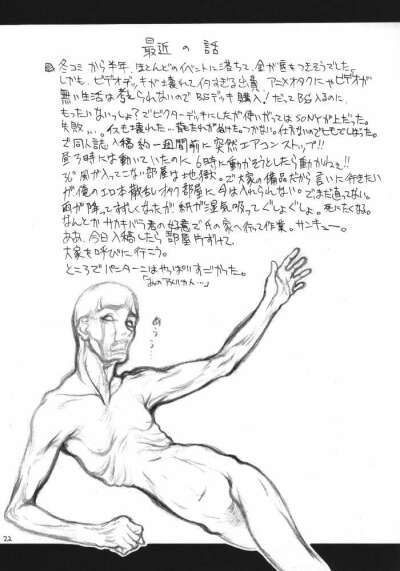 最近の話
冬コミから半年、ほとんどのイベントに落ちて、金が底をつきそうでした。
しかも、ビデオデッキが壊れてイタすぎる出費、アニメオタクにゃビデオが
無い生活は考えられないのでBSデッキ購入!だってBS入るのに、
もったいないっしょ?でビクターデッキにしたが使いがってはSONYが上だった。
失敗…。
で同人誌入稿約一週間前に突然エアコンストップ!!
昼3時には動いていたのに6時に動かそうとしたら動かねぇ!!
風が入ってこない部屋は地獄。で大家の備品だから言いに行きたい
が俺のエロ本散乱オタク部屋に今は入れられない。でまだ直ってない。
雨が降ってすずしくなったが、紙が湿気吸ってぐしょぐしょ。死にたくなる。
なんとかサカキバラ君の好意で氏の家へ行って作業。サンキュー。
ああ、今日入稿したら部屋片ずけて、
大家を呼びに行こう。
ところでパンターニはやっぱりすごかった。
あうう…
22